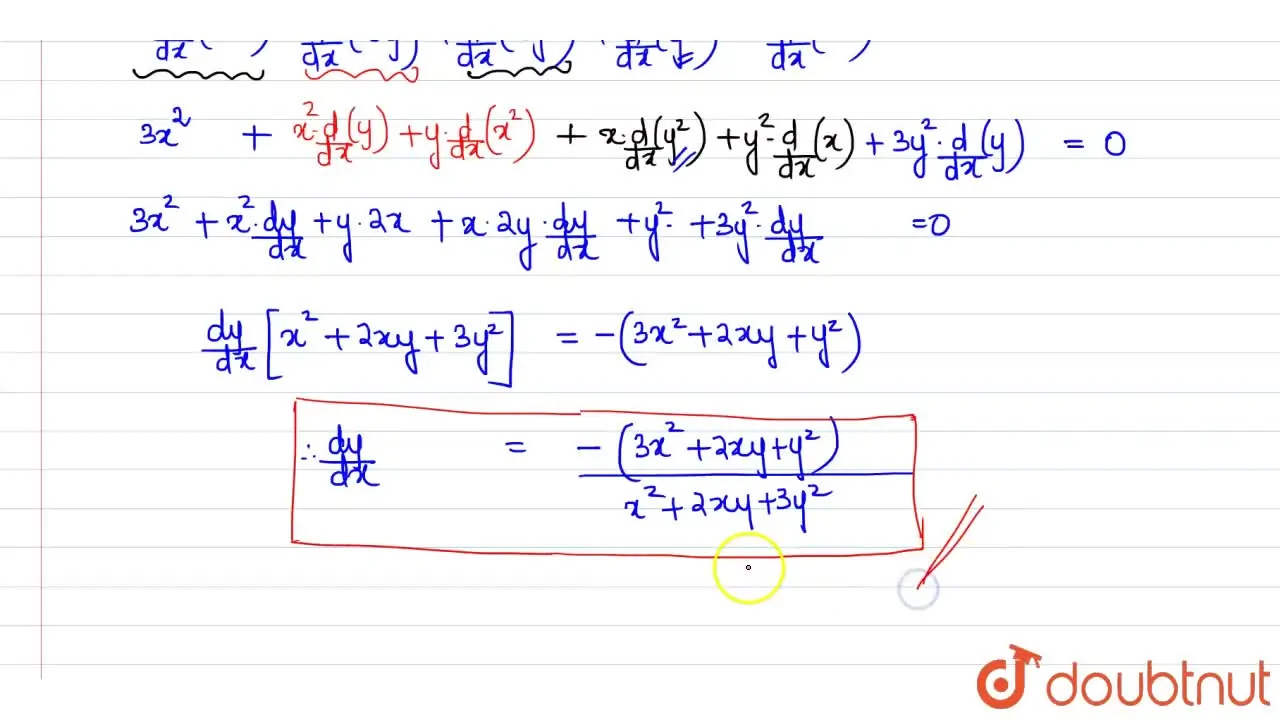 d/dx( ) d/dx( y) d/dx( y) d/dx( y) d/dx( )
3x² + x²·d/dx(y) + y·d/dx(x²) + x·d/dx(y²) + y²·d/dx(x) + 3y²·d/dx(y) = 0
3x² + x²·dy/dx + y·2x + x·2y·dy/dx + y² + 3y²·dy/dx = 0
dy/dx [x² + 2xy + 3y²] = -(3x² + 2xy + y²)
∴ dy/dx = -(3x² + 2xy + y²) / x² + 2xy + 3y²
doubtnut